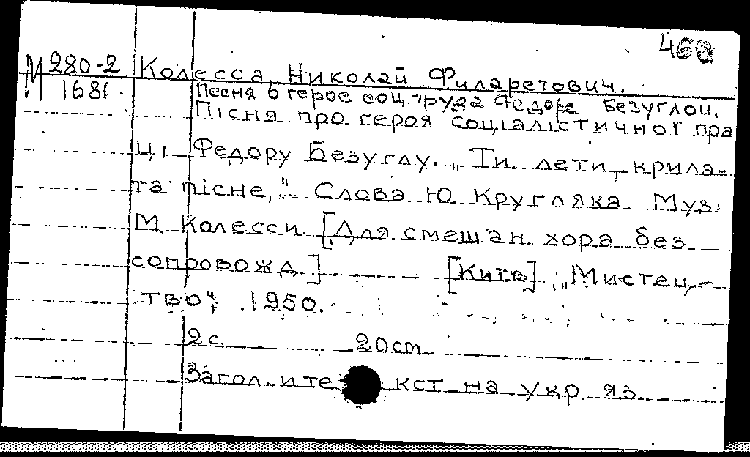 460
М 280-2 Колесса, Николай Филаретович.
1681 Песня о герое соц. труда Федоре Безуглой.
Пісня про героя соціалістичної пра
ці Федору Безуглу. „Ти лети, крила-
та пісне," Слова Ю Кругляка. Муз.
М. Колесси [Для смешан. хора без
сопровожд.] [Київ] „Мистец-
тво", 1950.
2 с 20 см
Загол. и текст на укр. яз.